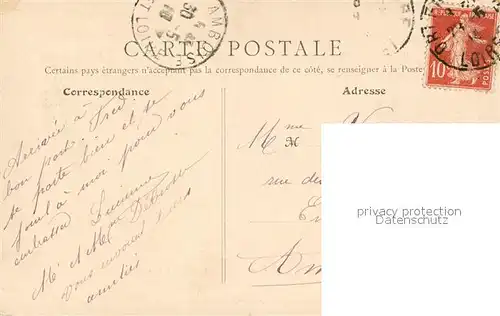 AMBOISE
CARTE POSTALE
Certains pays étrangers n'acceptant pas la correspondance de ce côté, se renseigner à la Poste
Correspondance
Adresse
Arrivée à
bon port. Fred
se porte bien et se
joint à moi pour vous
embrasser
Lucienne
Mr et Mme
vous envoient leurs
amitiés
Mme
rue de
10
POSTES
privacy protection
Datenschutz